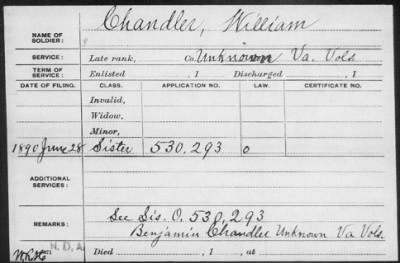 Chandler, William
NAME OF
SOLDIER:
SERVICE: Late rank, Co. Unknown Va. Vols
TERM OF
SERVICE: Enlisted , 1 Discharged , 1
DATE OF FILING. CLASS. APPLICATION NO. LAW. CERTIFICATE NO.
Invalid,
Widow,
Minor,
1890 June 28 Sister 530,293 O
ADDITIONAL
SERVICES:
See Sis. O. 530,293
REMARKS: Benjamin Chandler Unknown Va Vols.
N.D.A.
Died , 1 , at